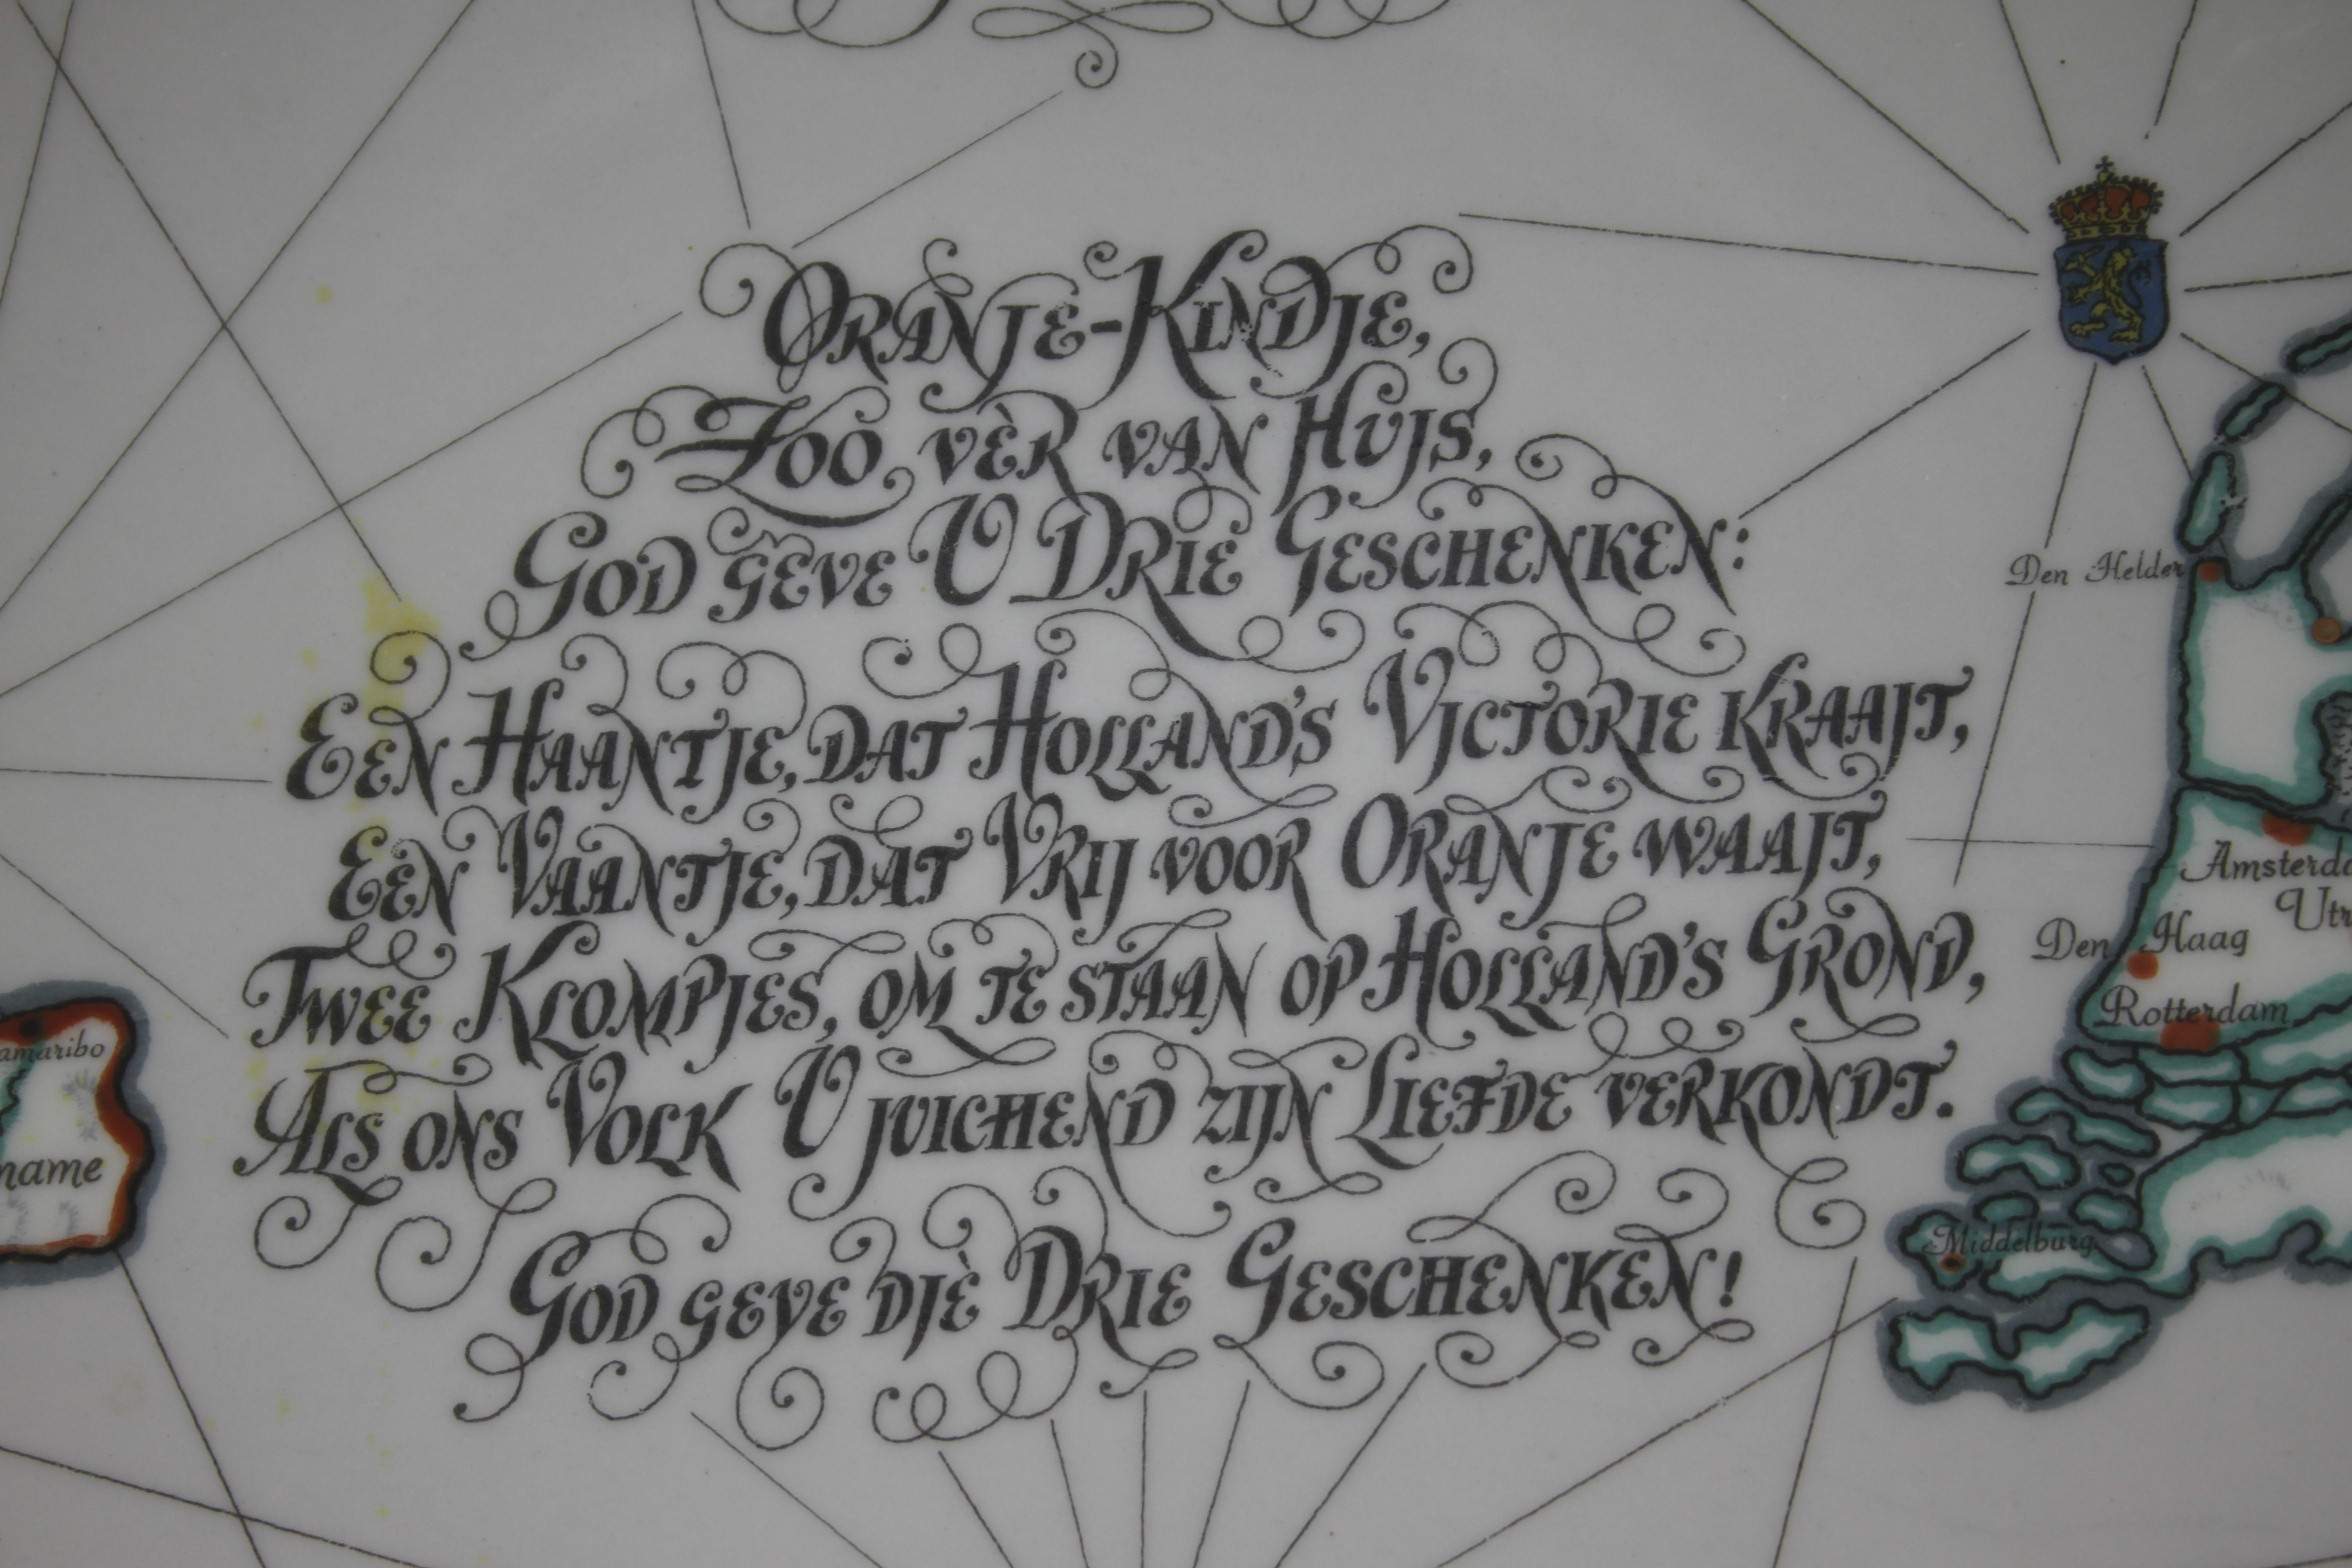 Oranje-Kindje,
Zoo vèr van Hujs,
God geve U Drie Geschenken:
Een Haantje, dat Holland's Victorie kraajt,
Een Vaantje, dat Vrij voor Oranje waajt,
Twee Klompjes, om te staan op Holland's Grond,
Als ons Volk U juichend zijn Liefde verkondt.
God geve djè Drie Geschenken!
Den Helder
Amsterda
Utr
Den Haag
Rotterdam
Middelburg
amaribo
name